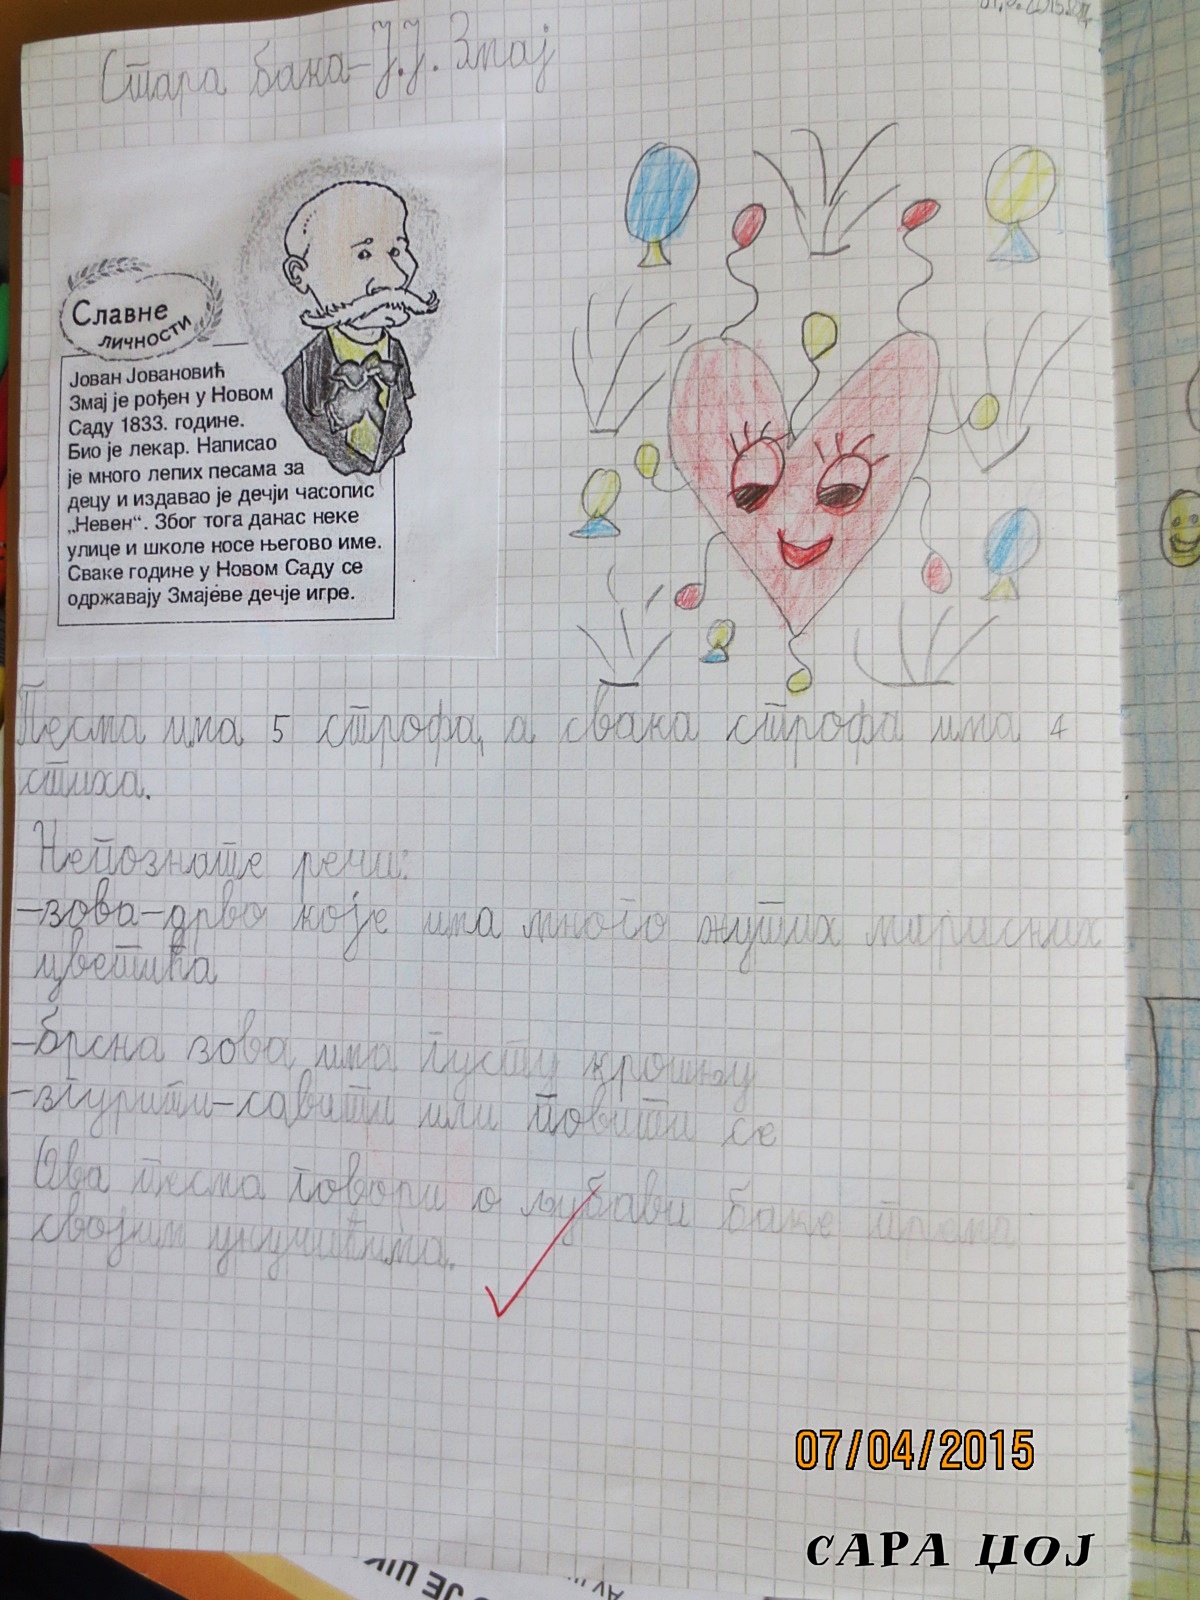 Стара бака-Ј.Ј. Змај
Славне
личности
Јован Јовановић
Змај је рођен у Новом
Саду 1833. године.
Био је лекар. Написао
је много лепих песама за
децу и издавао је дечји часопис
„Невен“. Због тога данас неке
улице и школе носе његово име.
Сваке године у Новом Саду се
одржавају Змајеве дечје игре.
Песма има 5 строфа, а свака строфа има 4
стиха.
Непознате речи:
-зова-дрво које има много жутих мирисних
цветића
-брсна зова има густу крошњу
-згурити-савити или повити се
Ова песма говори о љубави баке према
својим унучићима.
07/04/2015
САРА ЏОЈ
ЈЕ ЦІК